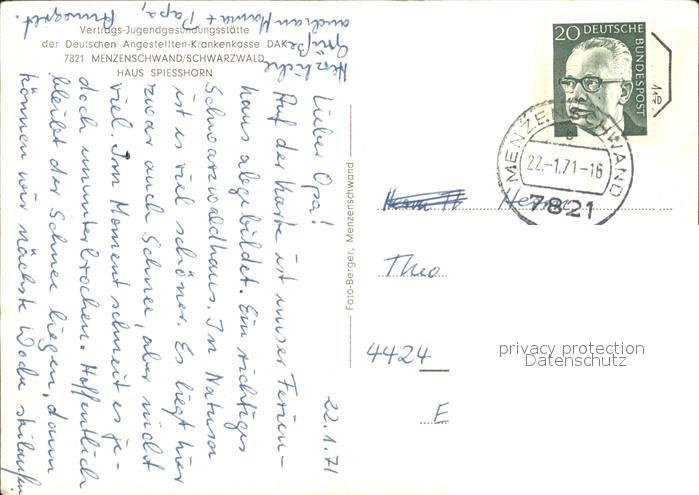 Vertrags-Jugendgesundungsstätte
der Deutschen Angestellten-Krankenkasse DAK
7821 MENZENSCHWAND/SCHWARZWALD
HAUS SPIESSHORN
22.1.71
Lieber Opa!
Auf der Karte ist unser Ferien-
haus abgebildet. Ein richtiges
Schwarzwaldhaus. In Natura
ist es viel schöner. Es liegt hier
zwar auch Schnee, aber nicht
viel. Im Moment schneit es je-
doch ununterbrochen. Hoffentlich
bleibt der Schnee liegen, dann
können wir nächste Woche skilaufen
Herzliche
Grüße
auch an Mama + Papa,
Foto-Berger, Menzenschwand
20 DEUTSCHE
BUNDESPOST
MENZENSCHWAND
22.-1.71-16
7821
Herrn
Theo
4424
E
privacy protection
Datenschutz